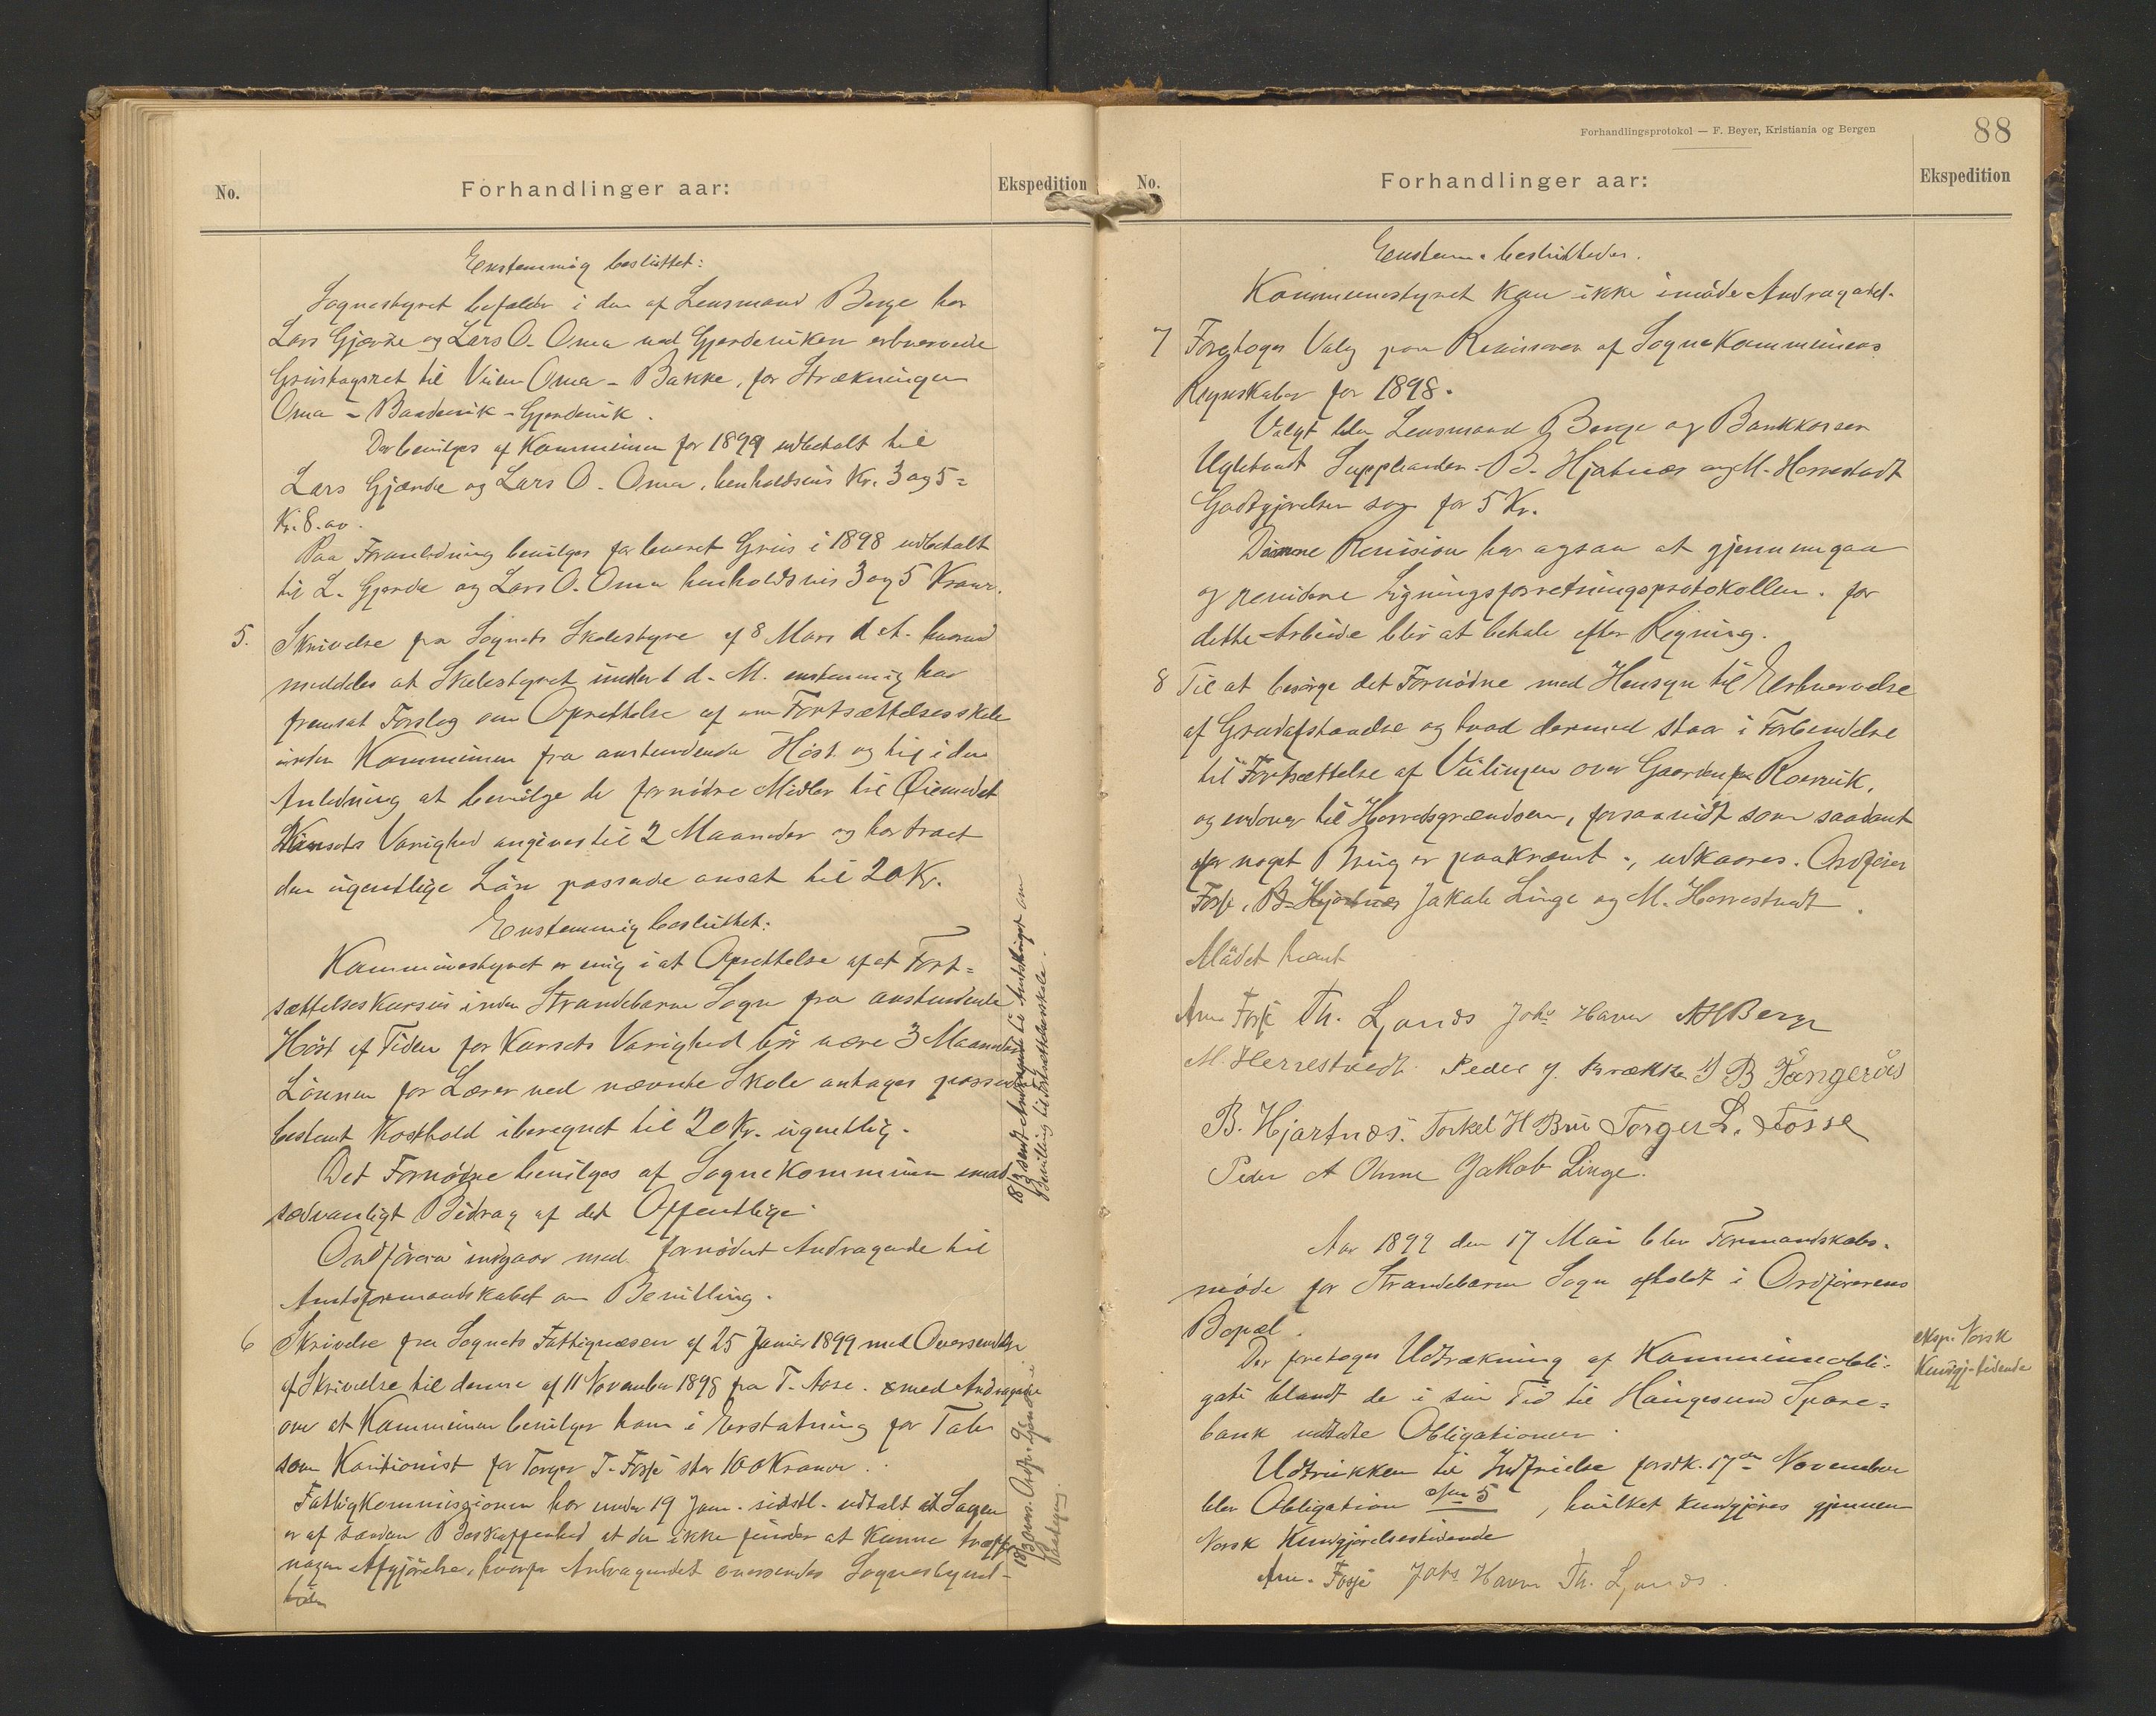 No.
Forhandlinger aar:
Ekspedition
Enstemmig besluttet:
Sognestyret befaldt i den af Lensmand Berge hos
Lars Gjærde og Lars O. Oma ved Gjerdeviken erhvervede
Grustagsret til Veien Oma - Bakke, for Strækningen
Oma - Baadsvik - Gjerdevik.
Der bevilges af Kommunen for 1899 udbetalt til
Lars Gjærde og Lars O. Oma, henholdsvis Kr. 3 og 5 =
Kr. 8.00.
Paa Foranledning bevilges for leveret Grus i 1898 udbetalt
til L. Gjerde og Lars O. Oma henholdsvis 3 og 5 Kroner.
5. Skrivelse fra Sognets Skolestyre af 8 Mars d. A. hvorved
meddeles at Skolestyret under 1 d. M. enstemmig har
fremsat Forslag om Oprettelse af en Fortsættelsesskole
inden Kommunen fra anstundende Høst og til i den
Anledning at bevilge de fornødne Midler til Øiemedet
Kursets Varighed angives til 2 Maaneder og har troet
den ugentlige Løn passende ansat til 20 Kr.
Enstemmig besluttet:
Kommunestyret er enig i at Oprettelse af et Fort=
sættelseskursus inden Strandebarm Sogn fra anstundende
Høst af Tiden for Kursets Varighed bør være 3 Maaneder
Lønnen for Lærer ved nævnte Skole antages passende
bestemt Kosthold iberegnet til 20 Kr. ugentlig.
Det Fornødne bevilges af Sognekommunen imod
sædvanligt Bidrag af det Offentlige.
Ordføreren indgaar med fornødent Andragende til
Amtsformandskabet om Bevilling.
18/3 sendt Andragende til Amtstinget om
Bevilling til Fortsættelsesskole.
6 Skrivelse fra Sognets Fattigvæsen af 25 Januar 1899 med Oversendelse
af Skrivelse til denne af 11 November 1898 fra T. Aase. med Andragende
om at Kommunen bevilger ham i Erstatning for Tab
som Kautionist for Torger T. Fosse stor 100 Kroner.
Fattigkommissionen har under 19 Janu. sidstl. udtalt at Sagen
er af saadan Beskaffenhed at den ikke finder at kunne træffe
nogen Afgjørelse, hvorfor Andragendet oversendes Sognestyret
18/3 overs. Ordfr. Gjenpart
Paategning.
Forhandlingsprotokol — F. Beyer, Kristiania og Bergen
88
No.
Forhandlinger aar:
Ekspedition
Enstem. besluttedes.
Kommunestyret kan ikke imøde Andragendet.
7 Foretoges Valg paa Revisorer af Sognekommunens
Regnskaber for 1898.
Valgt blev Lensmand Berge og Bankkasser
Ugletvedt Suppleanter B. Hjartnæs og M. Herrestvedt
Godtgjørelsen sees for 5 Kr.
Denne Revision har ogsaa at gjennemgaa
og revidere Ligningsforretningsprotokollen. for
dette Arbeide blir at betale efter Regning.
8 Til at besørge det Fornødne med Hensyn til Erhvervelse
af Grundafstaaelse og hvad dermed staar i Forbindelse
til Fortsættelse af Veilinjen over Gaarden Rosvik,
og udover til Herredsgrændsen, forsaavidt som saadant
for noget Brug er paakrævet, udkaares. Ordfører
Fosse, B. Hjartnæs Jakob Linge og M. Herrestvedt.
Mødet hævet
Am. Fosse Th. Lyonds Johs Haver AHBerge
M. Herrestvedt. Peder J. Brække J B Tangerås
B. Hjartnæs. Torkel H Bru Torger L. Fosse
Peder A Ohme Jakob Linge.
Aar 1899 den 17 Mai blev Formandskabs-
møde for Strandebarm Sogn afholdt i Ordførerens
Bopæl.
Der foretoges Udtrækning af Kommuneobli=
gati blandt de i sin Tid til Haugesund Spare=
bank udstedte Obligationer.
eksp. Norsk
Kundgj.tidende
Udtrukken til Indfrielse førstk. 17de November
blev Obligation No 5, hvilket kundgjøres gjennem
Norsk Kundgjørelsestidende
Am. Fosse Johs Haver Th. Lyonds.